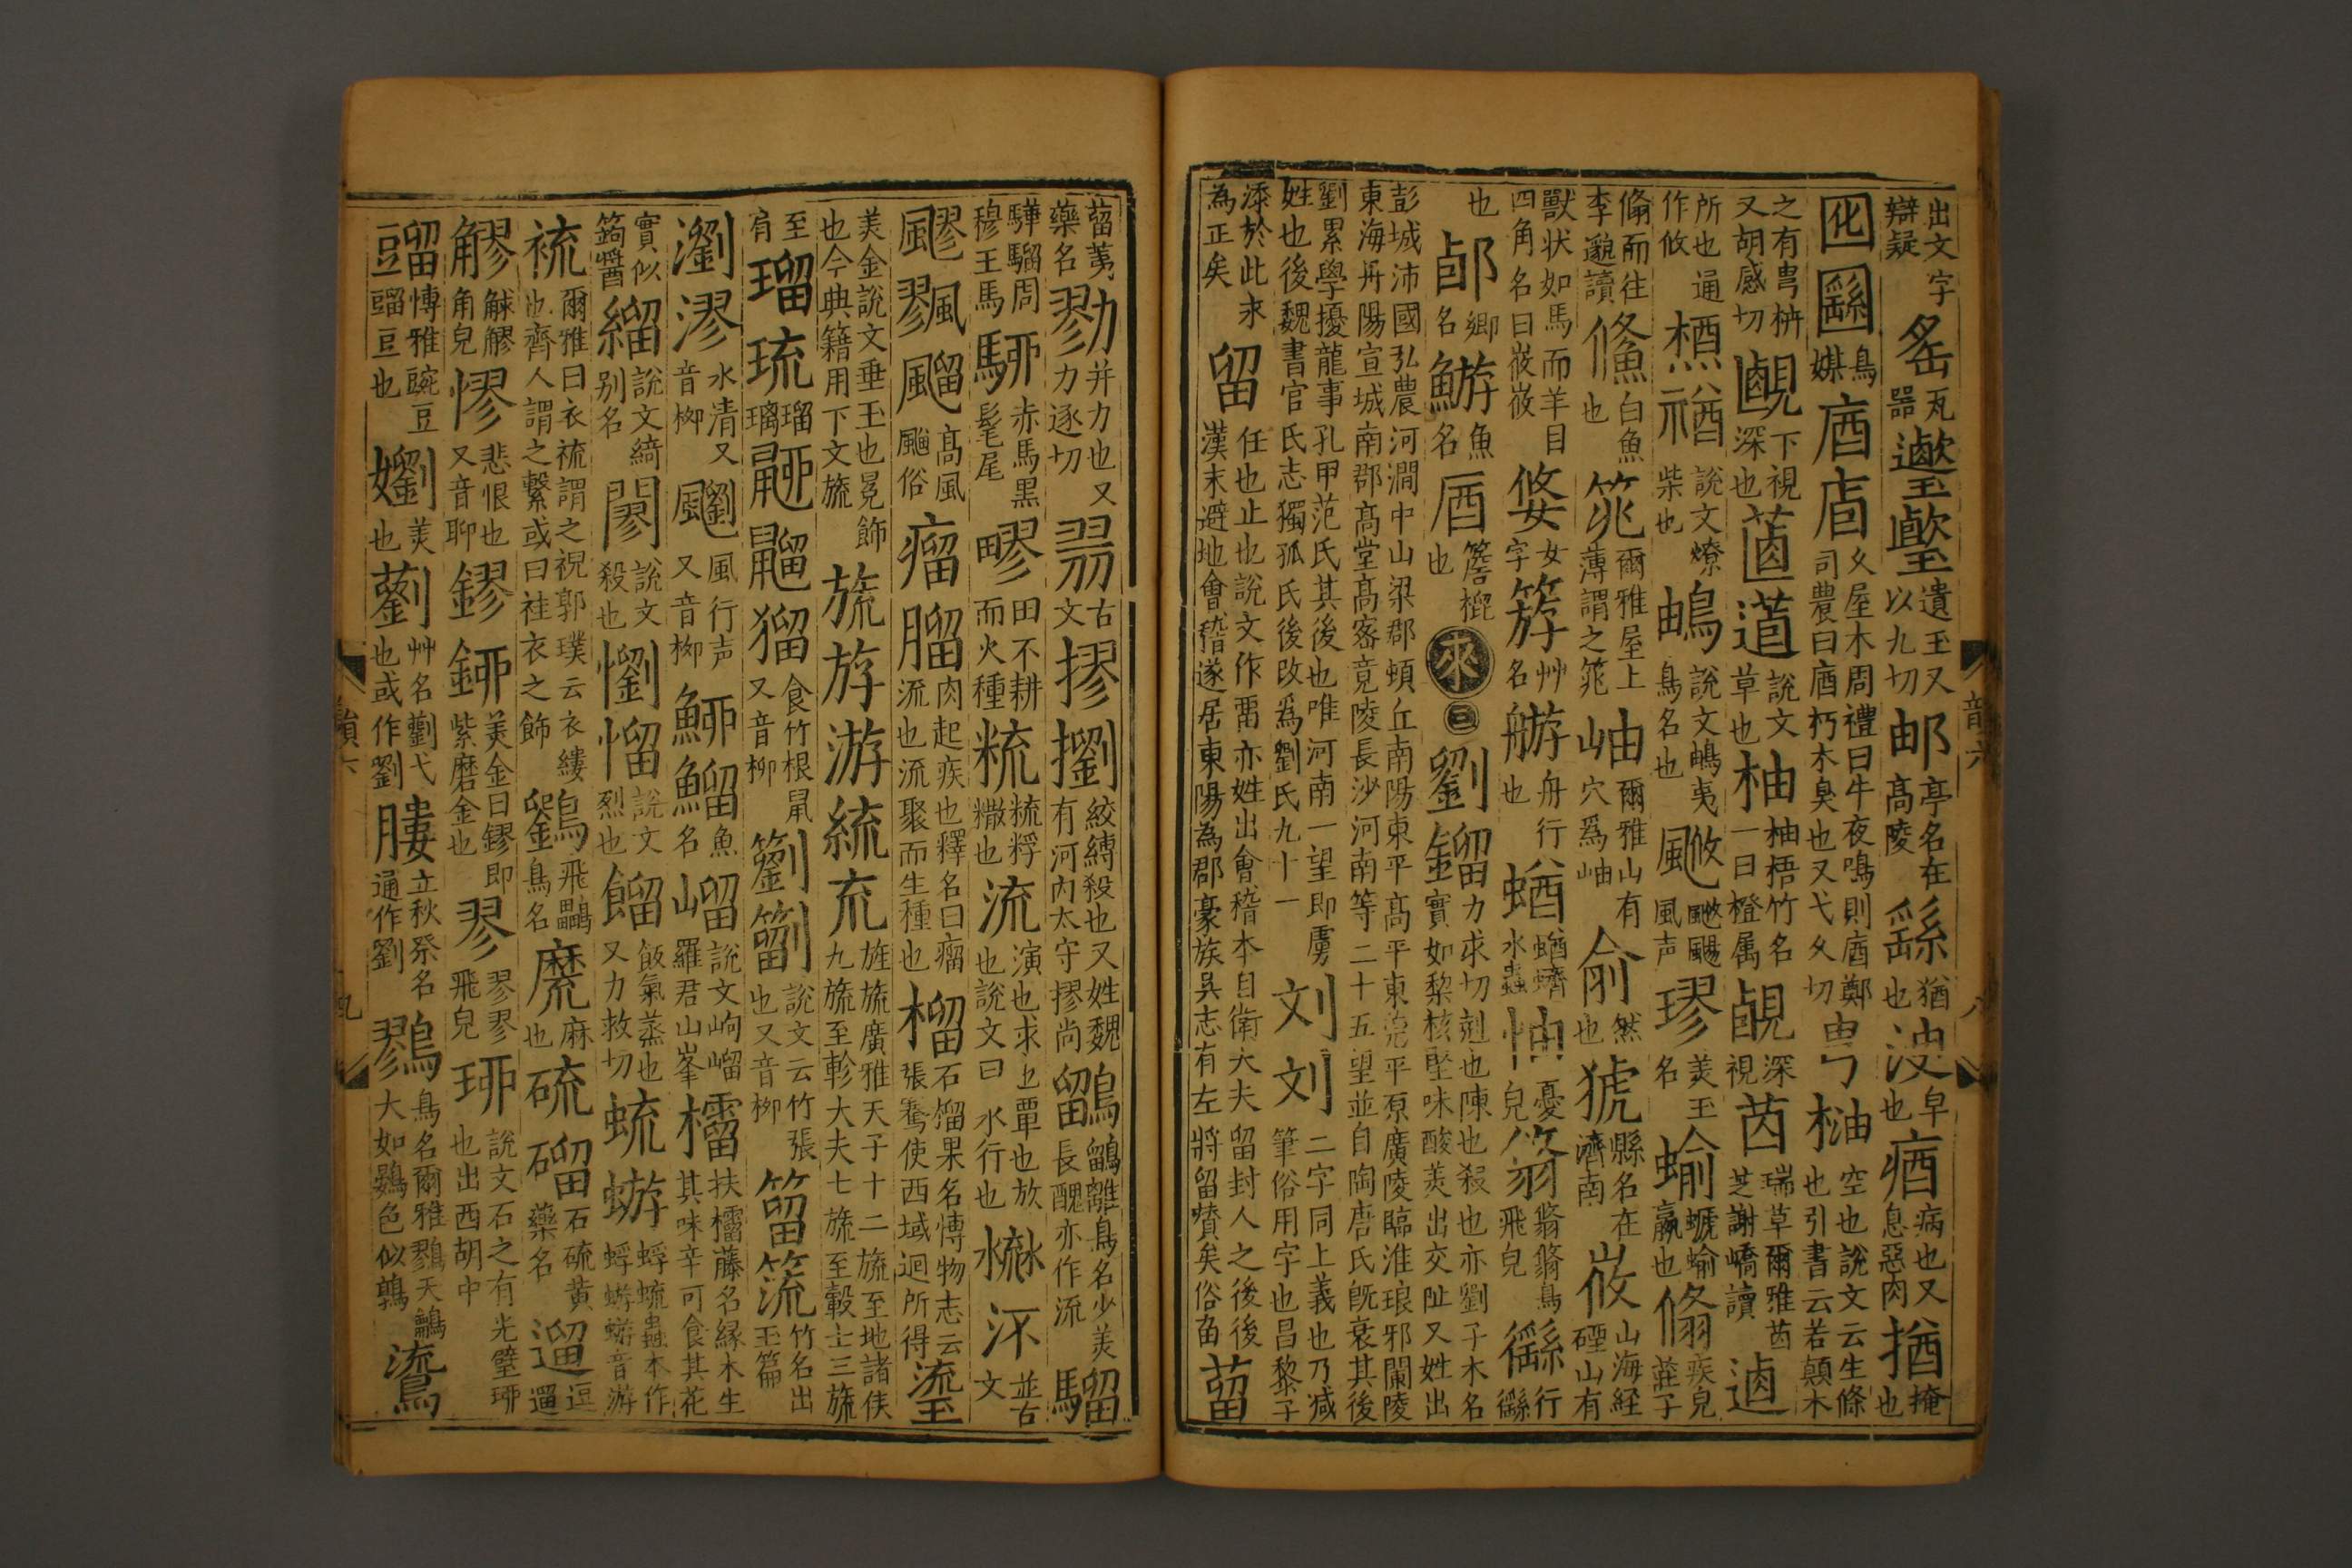 出文字辯疑䍃瓦器𨗿璗遺玉又以九切邮亭名在高陵䌛猶也浀阜也㾞病也又息惡肉揂掩也
囮𡈅鳥媒庮㡯久屋木周禮曰牛夜鳴則庮鄭司農曰庮朽木臭也又弋久切㽕柚空也說文云生條也引書云若顛木
之有㽕枿又胡感切䚃下視深也䔇𨔣說文草也柚柚梧竹名一曰橙属䚃深視茵瑞草爾雅茵芝謝嶠讀逌
所也通作攸楢𥙫說文燎柴也䳑說文䳑夷鳥名也䬀䬀䬙風声璆美玉名蝓螔蝓蠃也𦑲疾皃莊子
翛而往李邈讀鯈白魚也䇬爾雅屋上薄謂之䇬岫爾雅山有穴爲岫俞然也猇縣名在濟南峳山海経䃌山有
獸状如馬而羊目四角名曰峳峳㛜女字䈁艸名䑻舟行也蝤蝤蠐水蟲怞憂皃翛翛翛鳥飛皃䌛行䌛
也邮鄉名䱻魚名㕈簷棍也來三劉鎦力求切尅也陳也殺也亦劉子木名實如棃核堅味酸美出交阯又姓出
彭城沛國弘農河澗中山梁郡頓丘南陽東平高平東莞平原廣陵臨淮琅邪闌陵東海丹陽宣城南郡髙堂髙密竟陵長沙河南等二十五望並自陶唐氏旣衰其後
劉累學擾龍事孔甲范氏其後也唯河南一望即虜姓也後魏書官氏志獨孤氏後改爲劉氏九十一刘刘二字同上義也乃减筆俗用字也昌黎子
添於此求為正矣留任也止也說文作畱亦姓出會稽本自衛大夫留封人之後後漢末避地會稽遂居東陽為郡豪族吳志有左將留贊矣俗畄蒥
蒥荑藥名勠并力也又力逐切翏古文摎摺絞縛殺也又姓魏有河內太守摎尚鶹鶹離鳥名少美長醜亦作流騮
驊騮周穆王馬駵赤馬黒髦尾疁田不耕而火種𥹷𥹷粰糤也流演也求也覃也放也說文曰水行也㵞㳅並古文
飂飀飅髙風䬟俗瘤𦠙肉起疾也釋名曰瘤流也流聚而生種也榴石榴果名博物志云張騫使西域迴所得鎏
美金說文垂玉也冕飾也今典籍用下文旒旒斿游統㐬旌旒廣雅天子十二旒至地諸侯九旒至軫大夫七旒至轂士三旒
至肩瑠琉瑠璃鼫鼺猶食竹根鼠又音柳籀䉧說文云竹張也又音栁䉧篍竹名出玉篇
瀏漻水清又音栁飅風行声又音栁䱖鰡魚名㟳說文岣嶁羅君山峯櫺扶櫺藤名緣木生其味辛可食其花
實似蒟醬綹說文綺别名𨷻說文殺也懰㦃說文烈也餾飯氣蒸也又力救切蝣蝣蜉蝣蟲本作蜉蝣蝣音游
裗爾雅曰衣裗謂之視郭璞云衣縷也齊人謂之繫或曰袿衣之飾䳺飛鸓鳥名𪎦麻也硫磂石硫黄藥名遛逗遛
䚧觩觩角皃憀悲恨也又音聊鏐鉚美金曰鏐即紫磨金也翏翏翏飛皃珋說文石之有光璧珋也出西胡中
䝀愽雅䝀豆䝀豆也嬼美也藰艸名藰弋也或作劉膢立秋祭名通作劉鷚鳥名爾雅鷚天鸙大如鷃色似鶉鷎
韻六 八
韻六 九